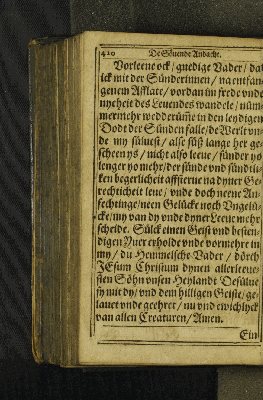 420 De Söuende Andacht.
Vorleene ock / gnedige Vader / dat
ick mit der Sünderinnen / na entfan-
genem Afflate / vordan im frede vnde
nyeheit des Leuendes wandele / nüm-
mermehr wedderümme in den leydigen
Dodt der Sünden falle / de Werlt vn-
de my süluest / alse süß lange her ge-
scheen ys / nicht also leeue / sünder yo
lenger yo mehr / der sünde vnd sündli-
ken begerlicheit affsterue na dyner Ge-
rechticheit leue / vnde doch neene An-
fechtinge / neen Gelücke noch Vngelü-
cke / my van dy vnde dyner Leeue mehr
scheide. Sülck einen Geist vnd besten-
digen Muer erholde vnde vormehre in
my / du Hemmelsche Vader / dörch
JEsum Christum dynen allerleeue-
sten Söhn vnsen Heylandt Desülue
sy mit dy / vnd dem hilligen Geiste / ge-
lauet vnde geehret / nu vnd ewichlyck
van allen Creaturen / Amen.
Ein